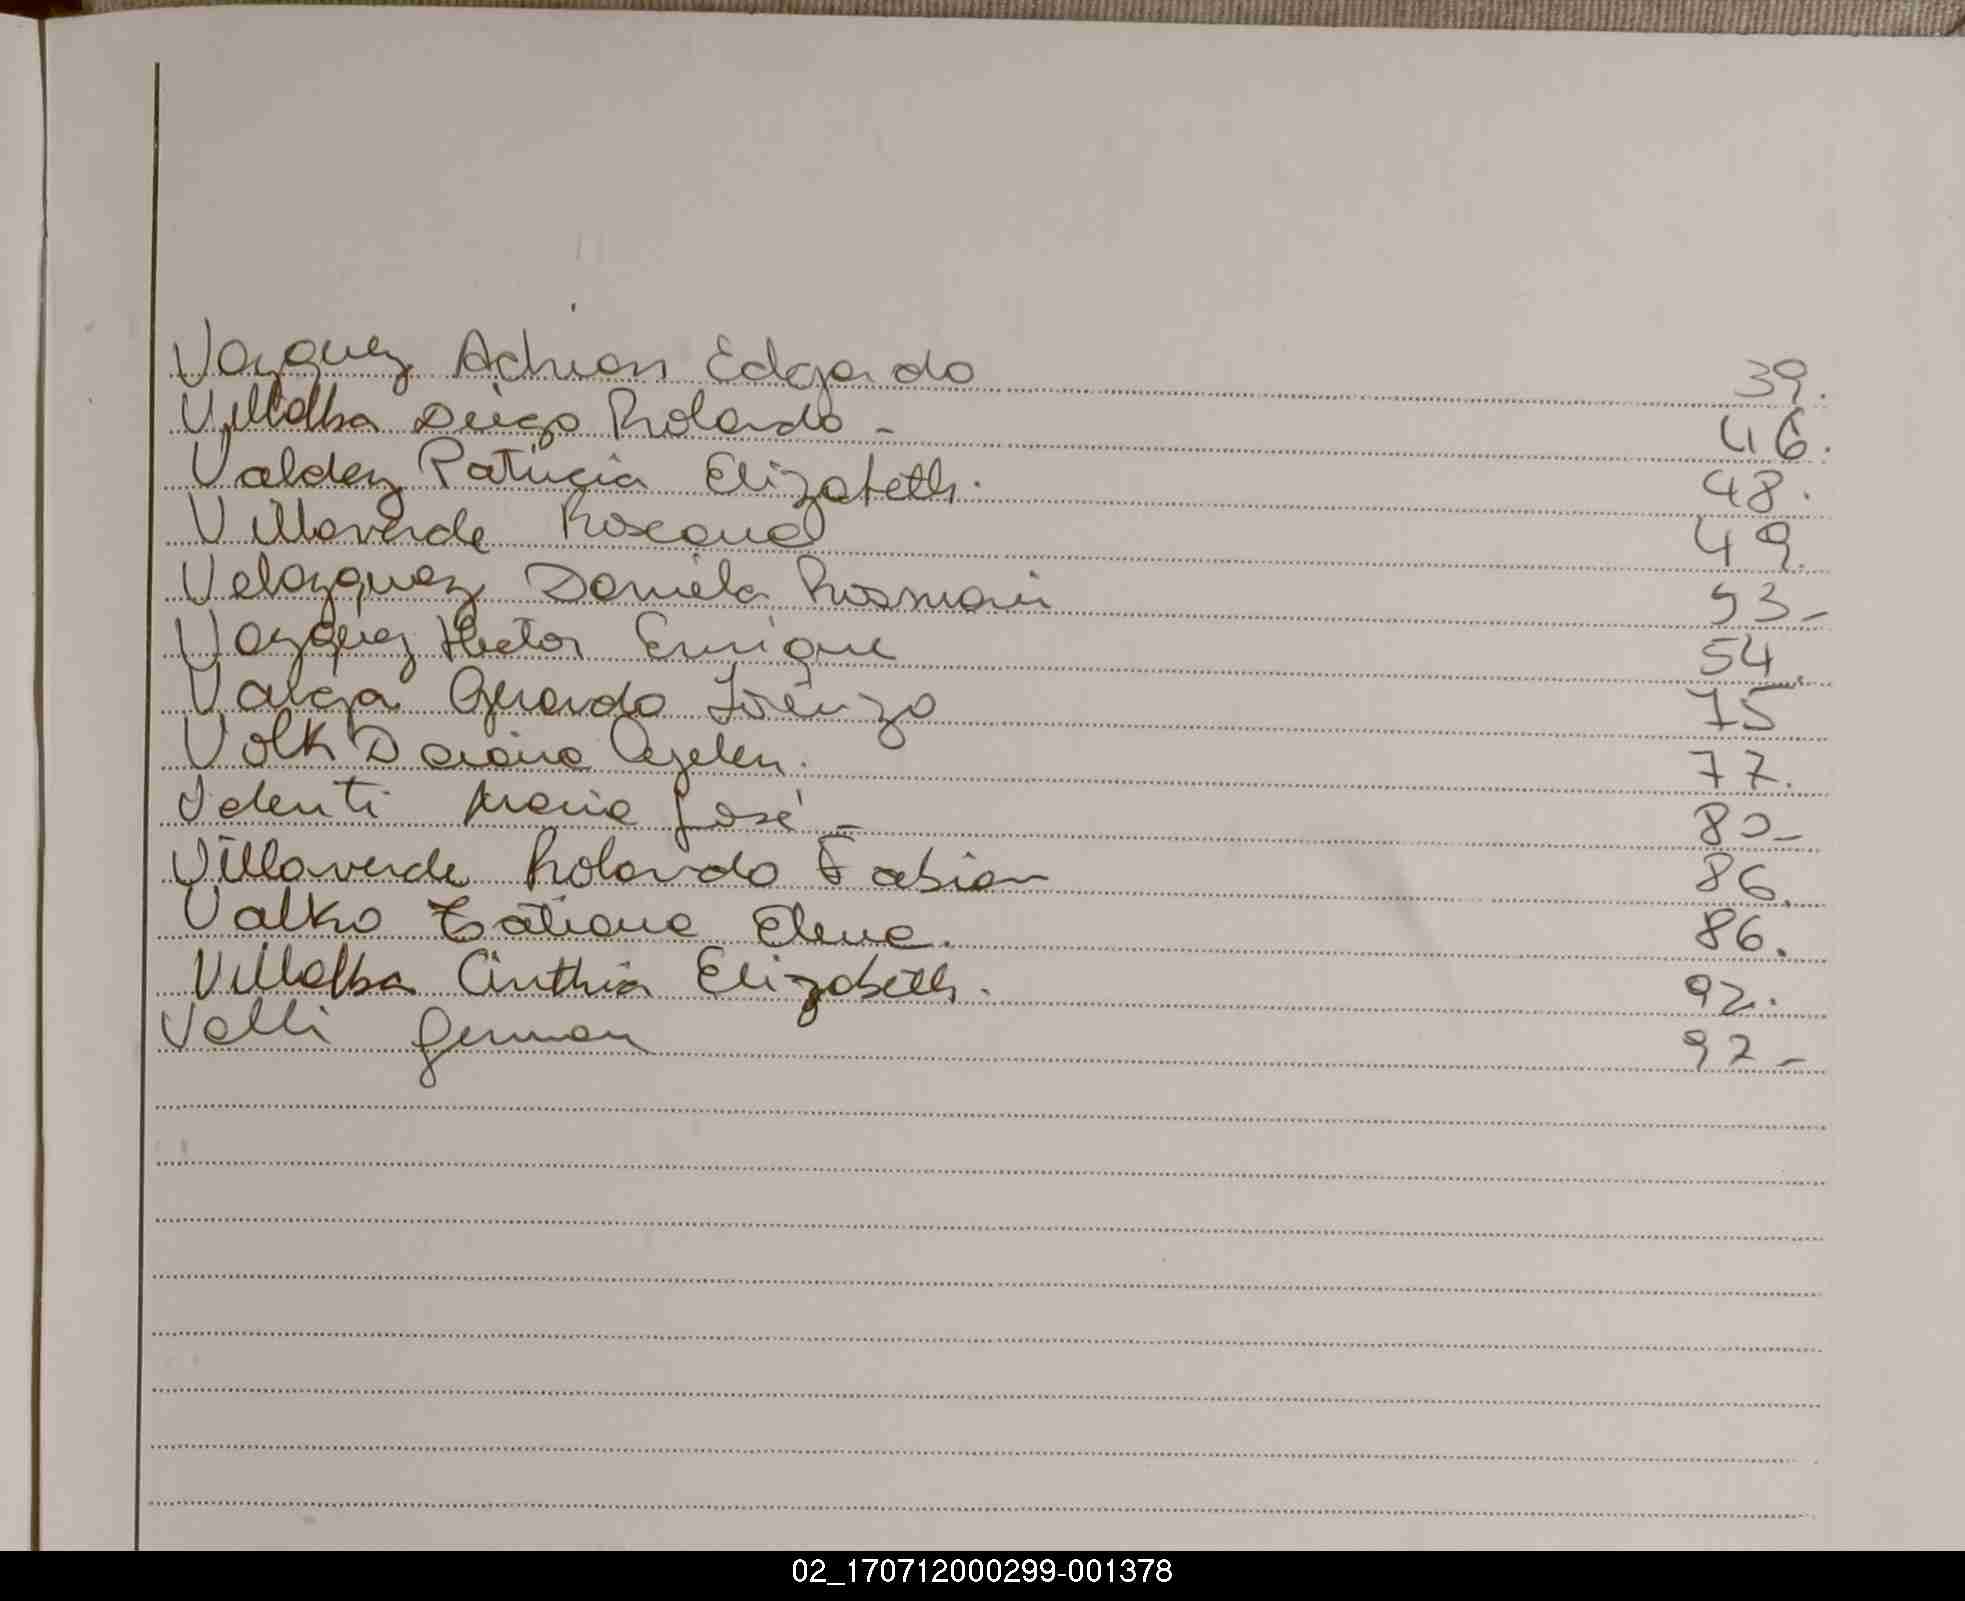 Vazquez Adrian Edgardo 39.
Villalba Diego Rolando - 46.
Valdez Patricia Elizabeth. 48.
Villaverde Roxana 49.
Velazquez Daniela Rosmari 53-
Vazquez Hector Enrique 54.
Varga Gerardo Lorenzo 75
Volk Daiana Ayelen. 77.
Valenti Maria José - 80-
Villaverde Rolando Fabian 86.
Valko Tatiana Elena. 86.
Villalba Cinthia Elizabeth. 92.
Valli German 97-
02_170712000299-001378